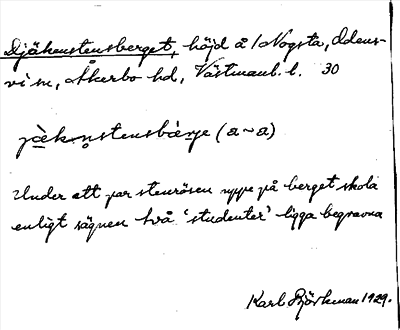 Djäkenstensberget, höjd å /Nogsta, Odens-
vi sn, Åkerbo hd, Västmanl. l. 30
jæ̀kn̥stensbæ̀rje (a~a)
Under ett par stenrösen uppe på berget skola
enligt sägnen två 'studenter' ligga begravna
Karl Björkman 1929.